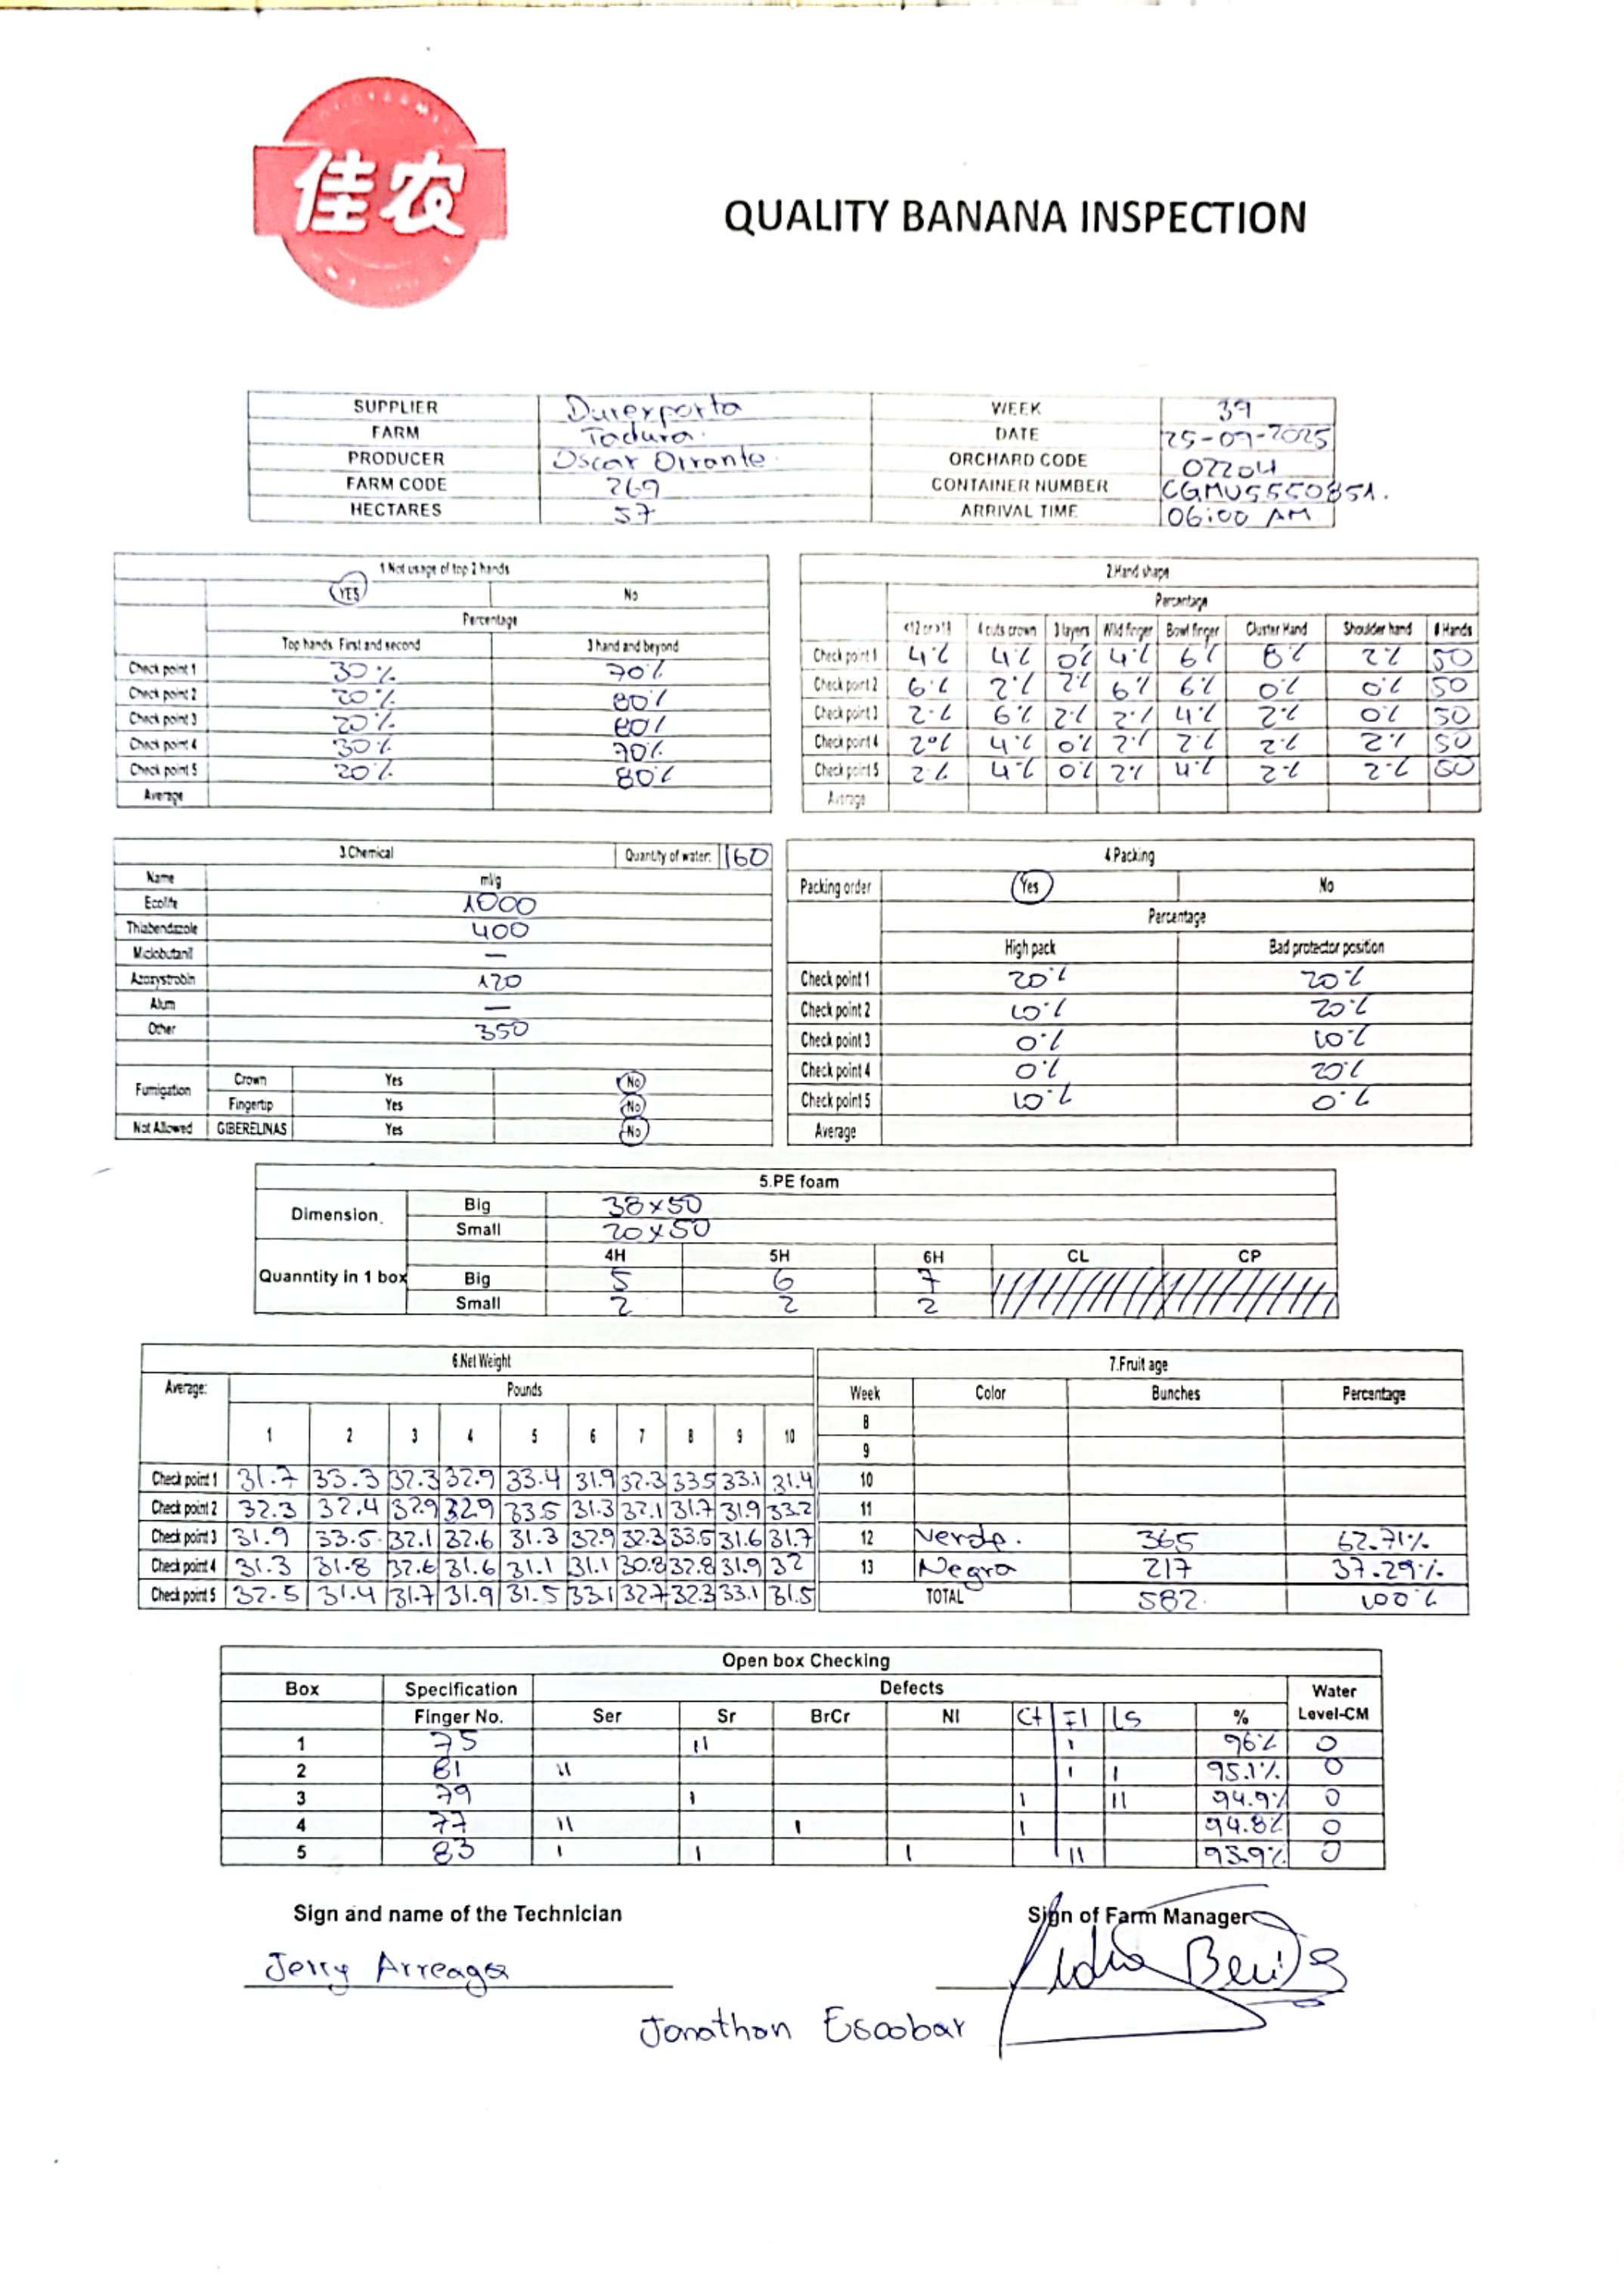 佳农
QUALITY BANANA INSPECTION
SUPPLIER Durexporta WEEK 39
FARM Tadura. DATE 25-09-2025
PRODUCER Oscar Orrante. ORCHARD CODE 02204
FARM CODE 269 CONTAINER NUMBER CGMU5550851.
HECTARES 57 ARRIVAL TIME 06:00 AM
1 Not usage of top 2 hands
YES No
Percentage
Top hands First and second 3 hand and beyond
Check point 1 30% 70%
Check point 2 20% 80%
Check point 3 20% 80%
Check point 4 30% 70%
Check point 5 20% 80%
Average
2.Hand shape
Percentage
<12 or >18 4 cuts crown 3 layers Wild finger Bowl finger Cluster Hand Shoulder hand # Hands
Check point 1 4% 4% 0% 4% 6% 8% 2% 50
Check point 2 6% 2% 2% 6% 6% 0% 0% 50
Check point 3 2% 6% 2% 2% 4% 2% 0% 50
Check point 4 2% 4% 0% 2% 2% 2% 2% 50
Check point 5 2% 4% 0% 2% 4% 2% 2% 50
Average
3.Chemical Quantity of water: 160
Name ml/g
Ecolife 1000
Thiabendazole 400
Miclobutanil —
Azoxystrobin 120
Alum —
Other 350
Fumigation Crown Yes No
Fingertip Yes No
Not Allowed GIBERELINAS Yes No
4.Packing
Packing order Yes No
Percentage
High pack Bad protector position
Check point 1 20% 20%
Check point 2 10% 20%
Check point 3 0% 10%
Check point 4 0% 20%
Check point 5 10% 0%
Average
5.PE foam
Dimension Big 38x50
Small 20x50
4H 5H 6H CL CP
Quanntity in 1 box Big 5 6 7
Small 2 2 2
6.Net Weight
Average: Pounds
1 2 3 4 5 6 7 8 9 10
Check point 1 31.7 33.3 32.3 32.9 33.4 31.9 32.3 33.5 33.1 31.4
Check point 2 32.3 32.4 32.9 32.9 33.5 31.3 32.1 31.7 31.9 33.2
Check point 3 31.9 33.5 32.1 32.6 31.3 32.9 32.3 33.5 31.6 31.7
Check point 4 31.3 31.8 32.6 31.6 31.1 31.1 30.8 32.8 31.9 32
Check point 5 32.5 31.4 31.7 31.9 31.5 33.1 32.7 32.3 33.1 31.5
7.Fruit age
Week Color Bunches Percentage
8
9
10
11
12 Verde. 365 62.71%
13 Negra 217 37.29%
TOTAL 582. 100%
Open box Checking
Box Specification Defects Water
Finger No. Ser Sr BrCr NI Ct FI LS % Level-CM
1 75 II I 96% 0
2 81 II I I 95.1% 0
3 79 I I II 94.9% 0
4 77 II I I 94.8% 0
5 83 I I I II 93.9% 0
Sign and name of the Technician Sign of Farm Manager
Jerry Arreaga
Jonathan Escobar